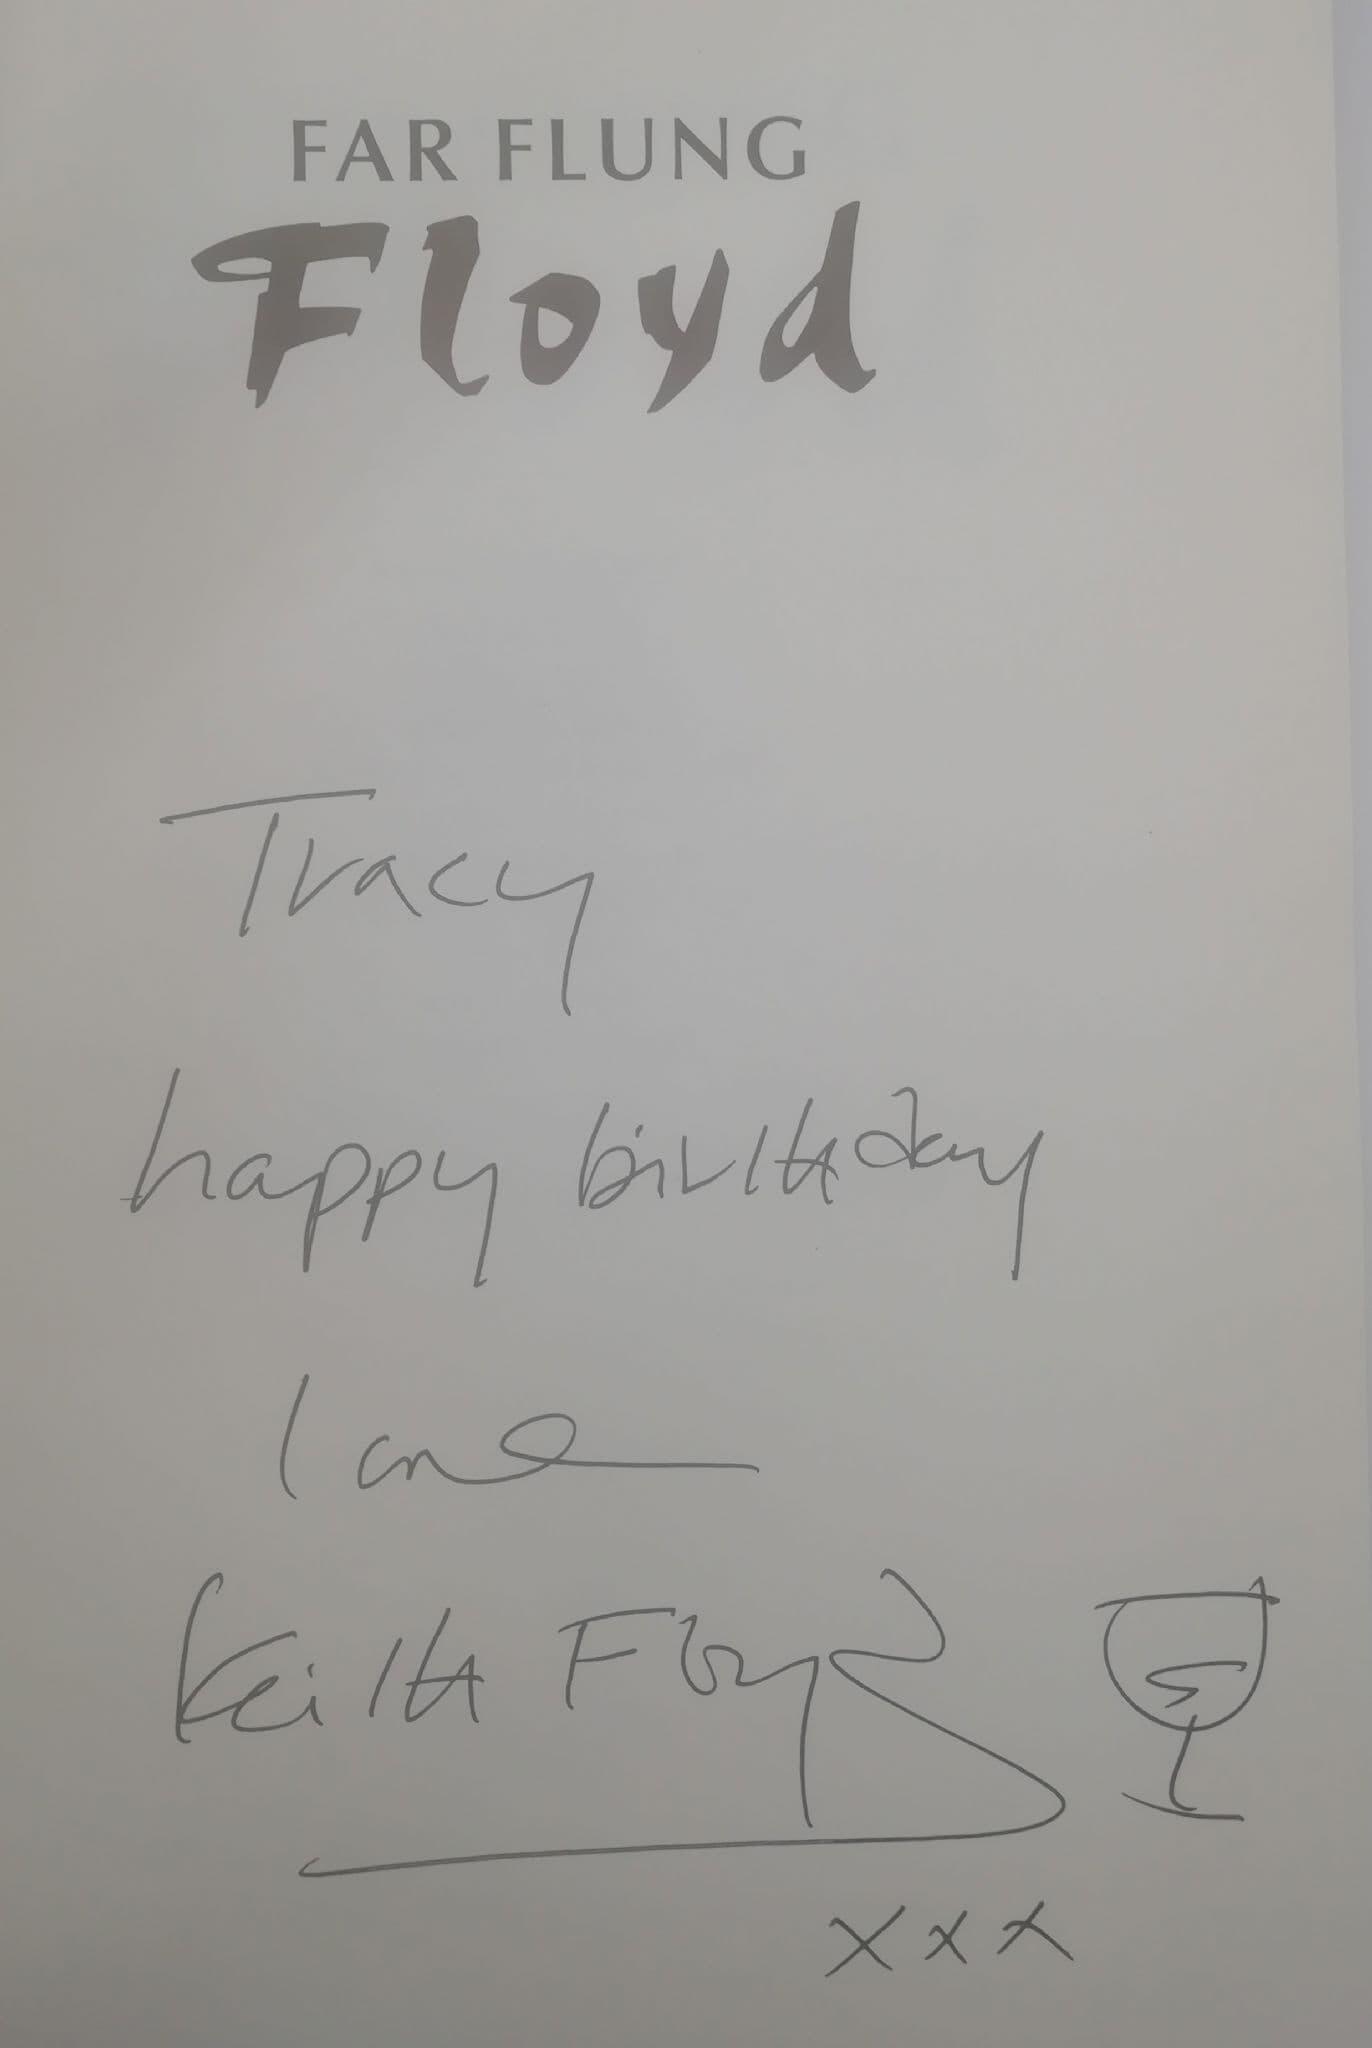 FAR FLUNG
Floyd
Tracy
happy birthday
love
Keith Floyd
xxx